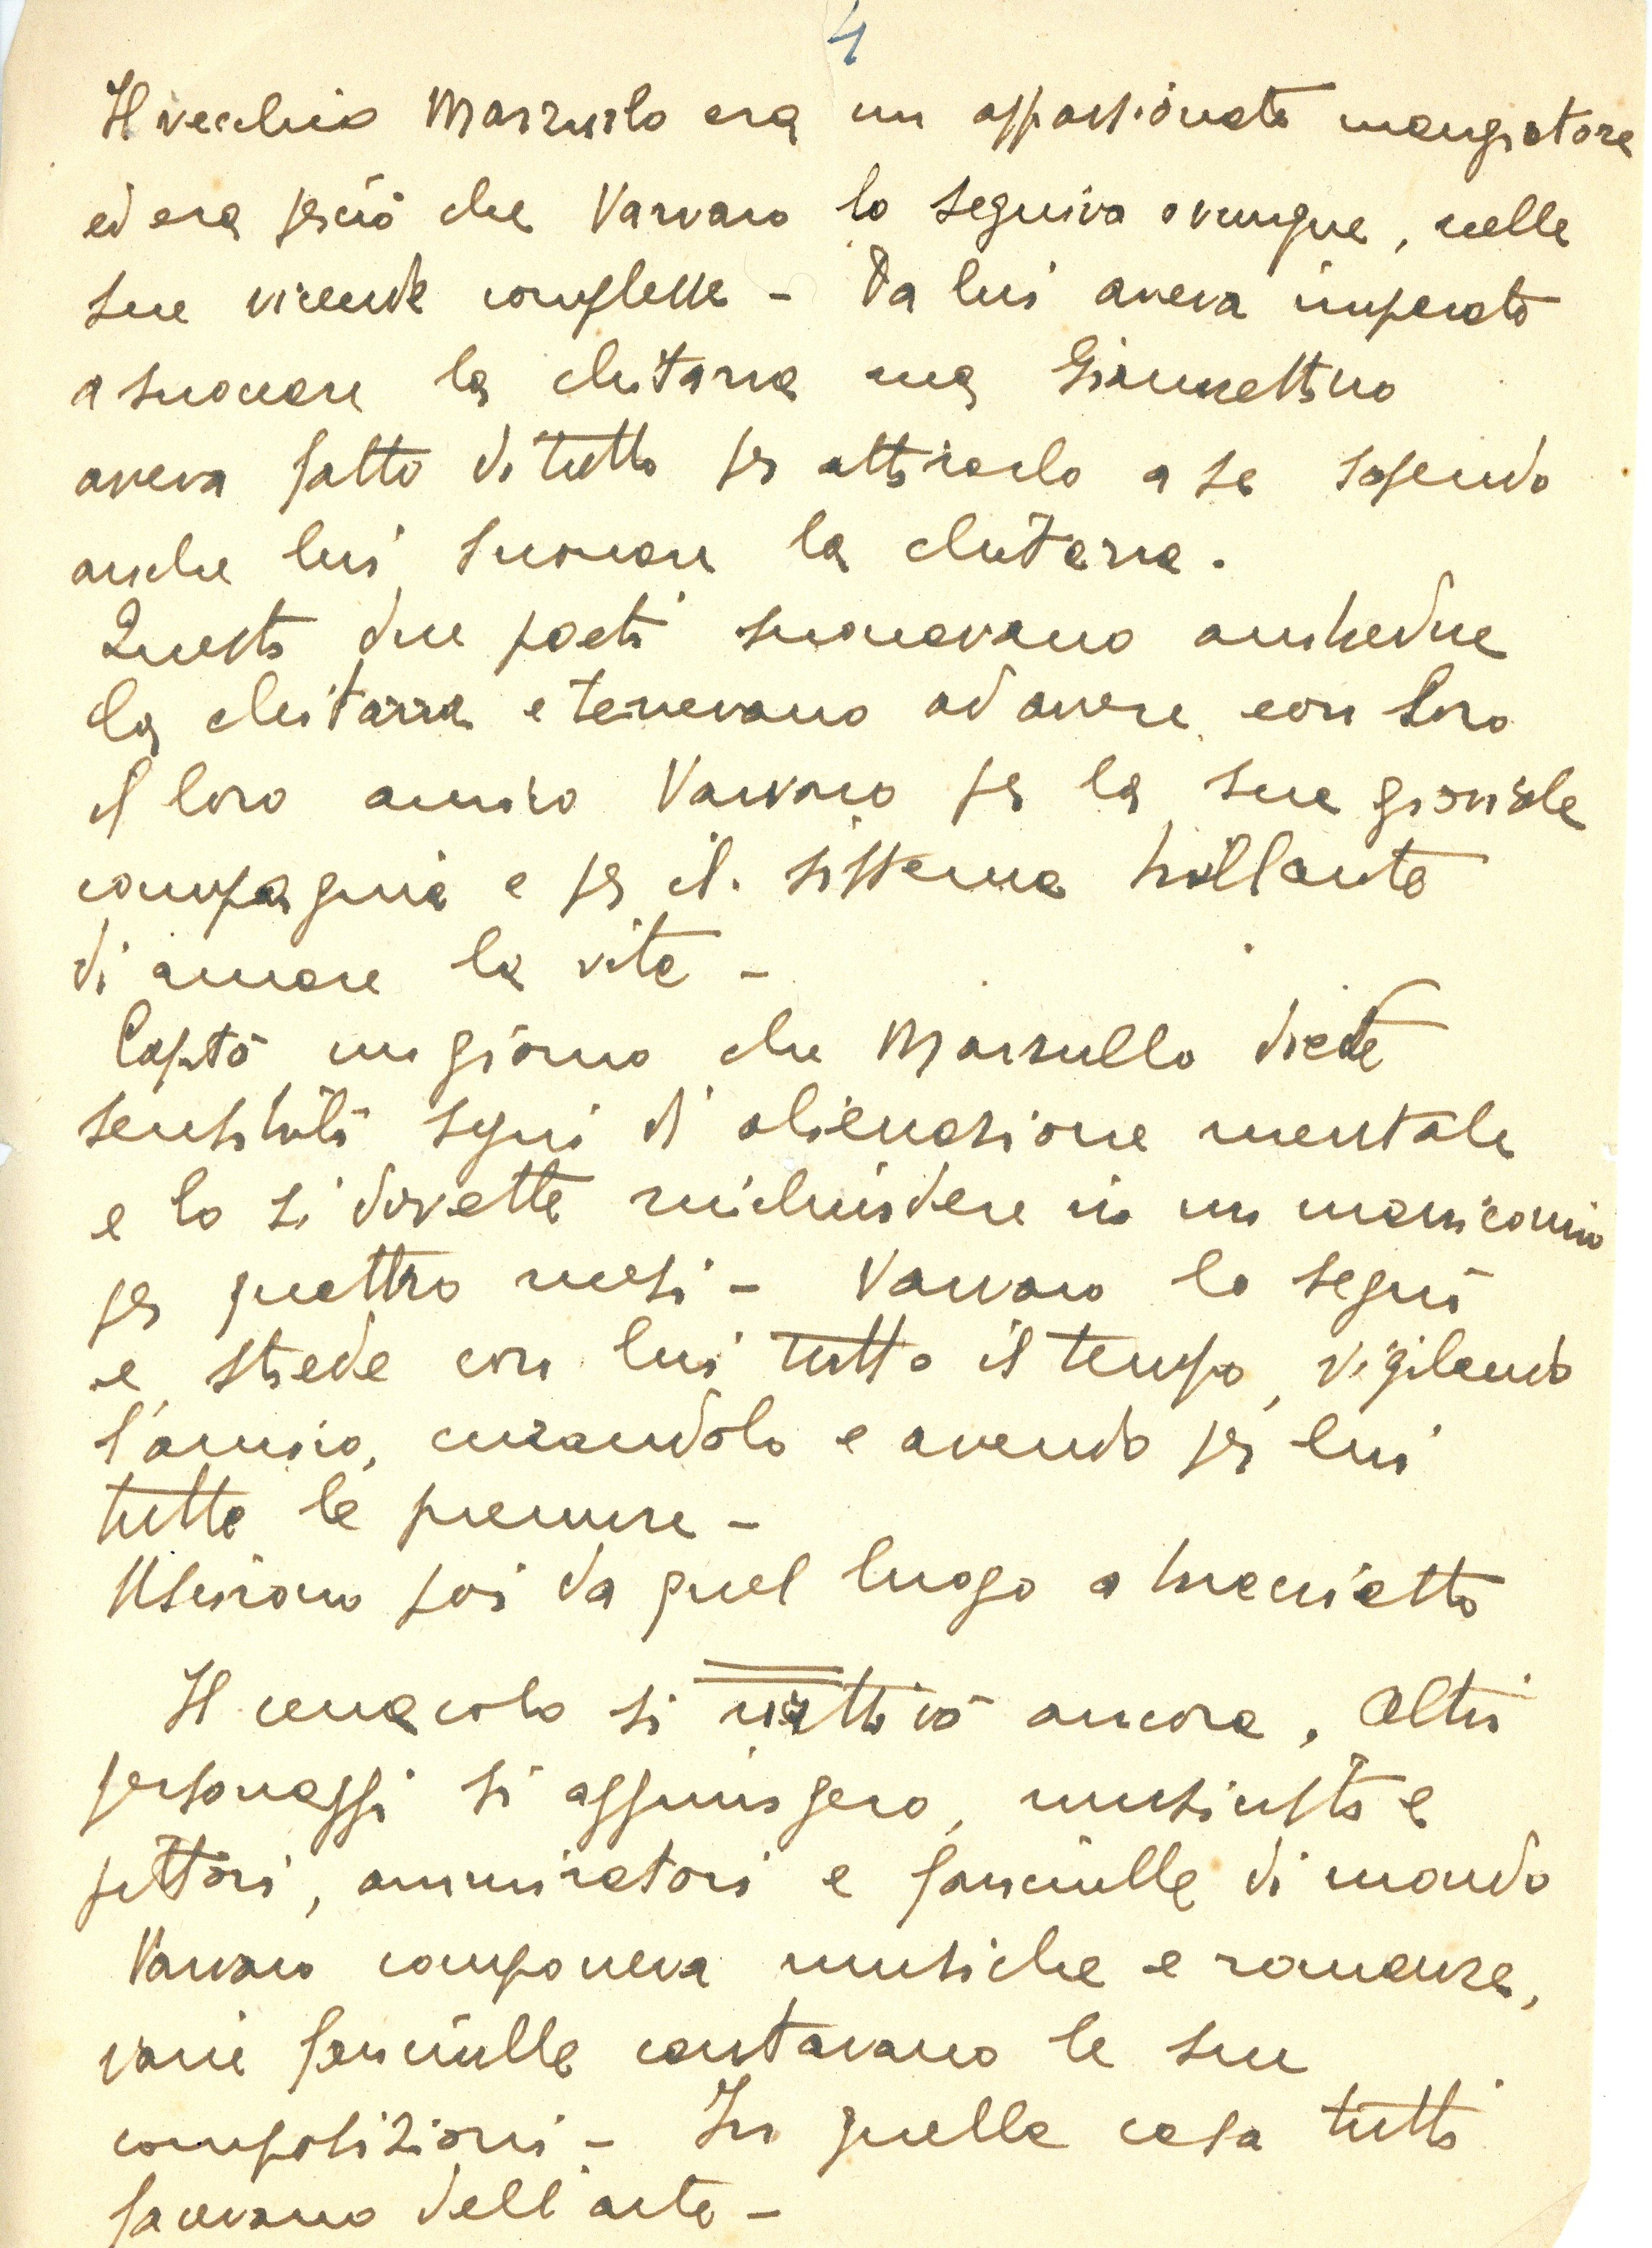 4
Il vecchio Marzullo era un appassionato mangiatore
ed era perciò che Varvaro lo seguiva ovunque, nelle
sue vicende complesse - Da lui aveva imparato
a suonare la chitarra ma Giannettino
aveva fatto di tutto per attirarlo a se sapendo
anche lui suonare la chitarra.
Questi due poeti suonavano ambedue
la chitarra e tenevano ad avere con loro
il loro amico Varvaro per la sua gioviale
compagnia e per il sistema brillante
di amare la vita -
Capitò un giorno che Marzullo diede
sensibili segni di alienazione mentale
e lo si dovette rinchiudere in un manicomio
per quattro mesi - Varvaro lo seguì
e stiede con lui tutto il tempo, vigilando
l'amico, curandolo e avendo per lui
tutte le premure -
Uscirono poi da quel luogo a braccietto
Il cenacolo si riattivò ancora. Altri
personaggi si aggiunsero, musicisti e
pittori, ammiratori e fanciulle di mondo
Varvaro componeva musiche e romanze,
varie fanciulle cantavano le sue
composizioni - In quella casa tutti
facevano dell'arte -